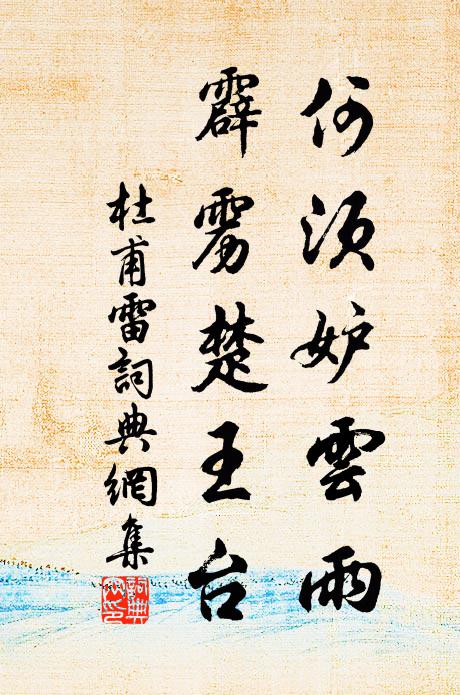 何須妒雲雨
霹雳楚王台
杜甫雷詞典網集